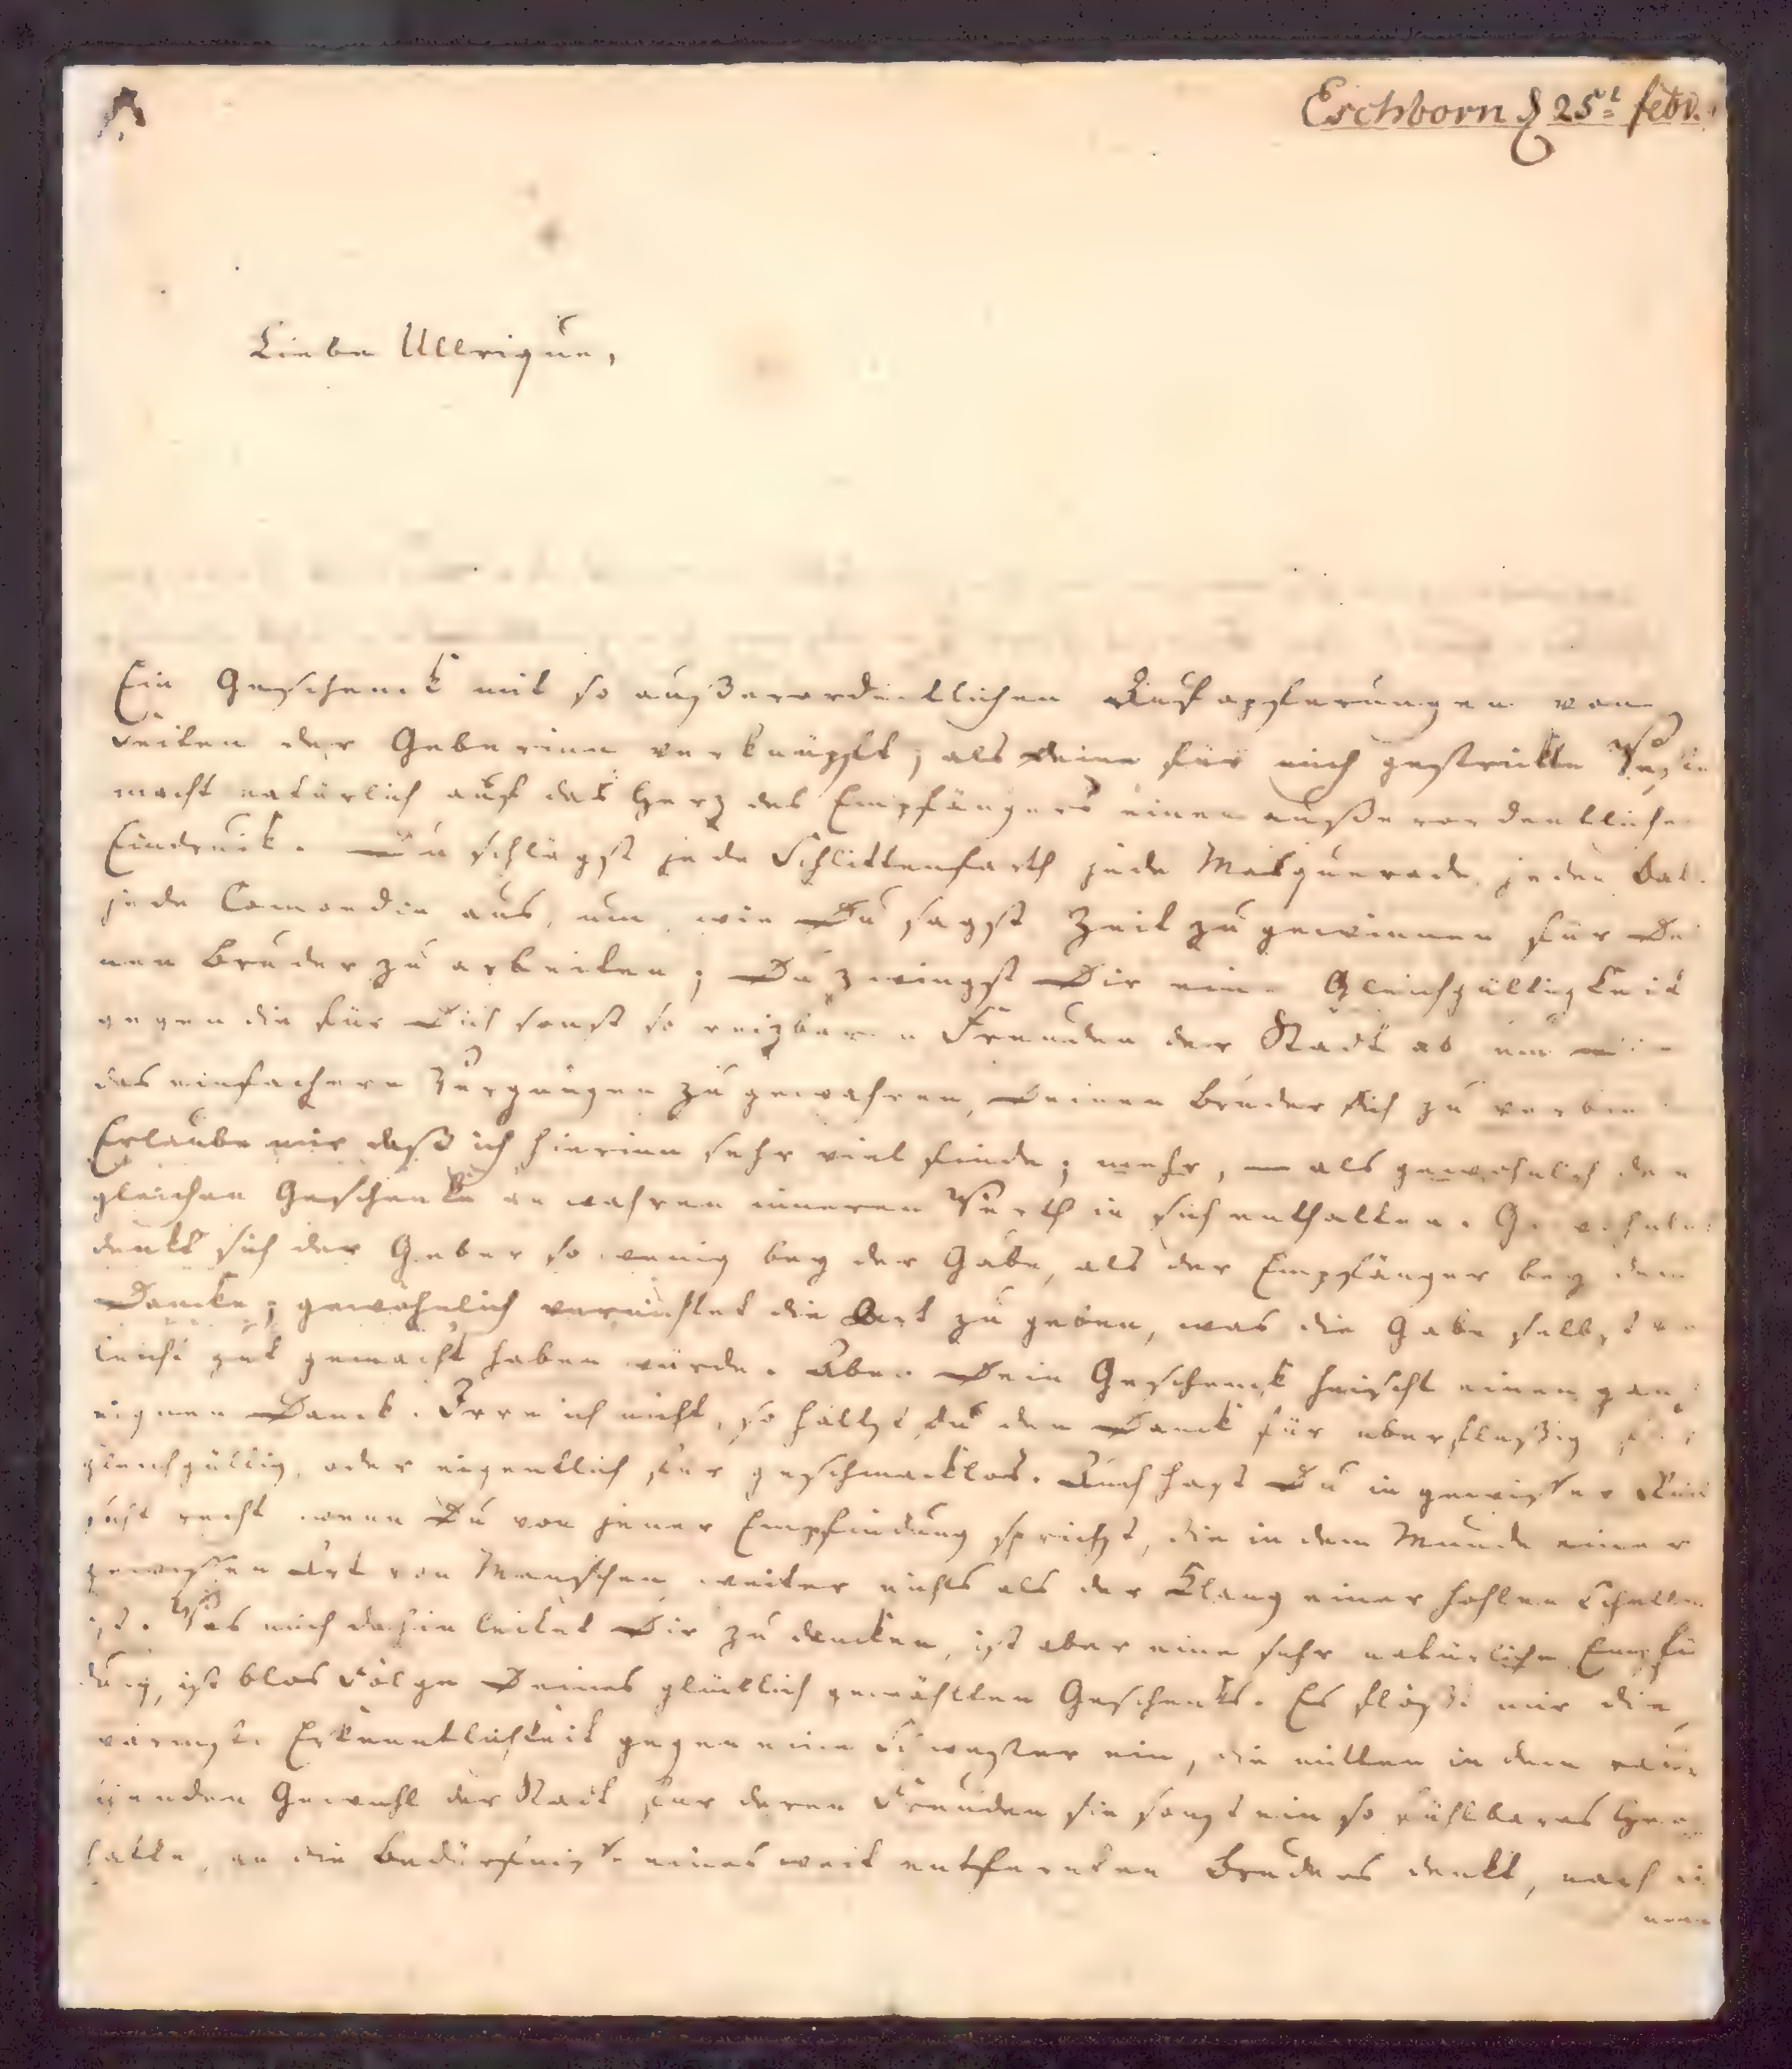 Eschborn d 25t febr.
Liebe Ullrique,
Ein Geschenck mit so außerordentlichen Aufopferungen von
Seiten der Geberinn verknüpft, als Deine für mich gestrickte Weste
macht natürlich auf das Herz des Empfängers einen außerordentlichen
Eindruck. Du schlägst jede Schlittenfarth jede Masquerade, jeden Ball
jede Comoedie aus, um, wie Du sagst Zeit zu gewinnen für Dei
nen Bruder zu arbeiten; Du zwingst Dir eine Gleichgültigkeit
gegen die für Dich sonst so reizbaren Freuden der Stadt ab um
das einfachere Vergnügen zu gewahren, Deinen Bruder Dich zu verbin
Erlaube mir daß ich hierinn sehr viel finde; mehr, als gewöhnlich der
gleichen Geschencke an wahren inneren Werth in sich enthalten. Gewöhnlich
denkt sich der Geber so wenig bey der Gabe, als der Empfänger bey dem
Dancke; gewöhnlich vernichtet die Art zu geben, was die Gabe selbst
leicht gut gemacht haben würde. Aber Dein Geschenck heischt einen ganz
eignen Danck. Irre ich nicht, so hältst du den Danck für überflüßig, für
gleichgültig, oder eigentlich für geschmacklos. Auch hast Du in gewißer Rück
sicht recht wenn Du von jener Empfindung sprichst, die in dem Munde einer
gewißen Art von Menschen weiter nichts als der Klang einer hohlen Schelle
ist. Was mich dahin leitet Dir zu dancken, ist aber eine sehr natürliche Empfin
dung, ist blos Folge Deines glücklich gewählten Geschencks. Es flößt mir die
wärmste Erkenntlichkeit gegen eine Schwester ein, die mitten in dem
Gewühl der Stadt für deren Freuden sie sonst ein so fühlbares Herz
hatte, an die Bedürfniße eines weit entfernten Bruders denkt, nach